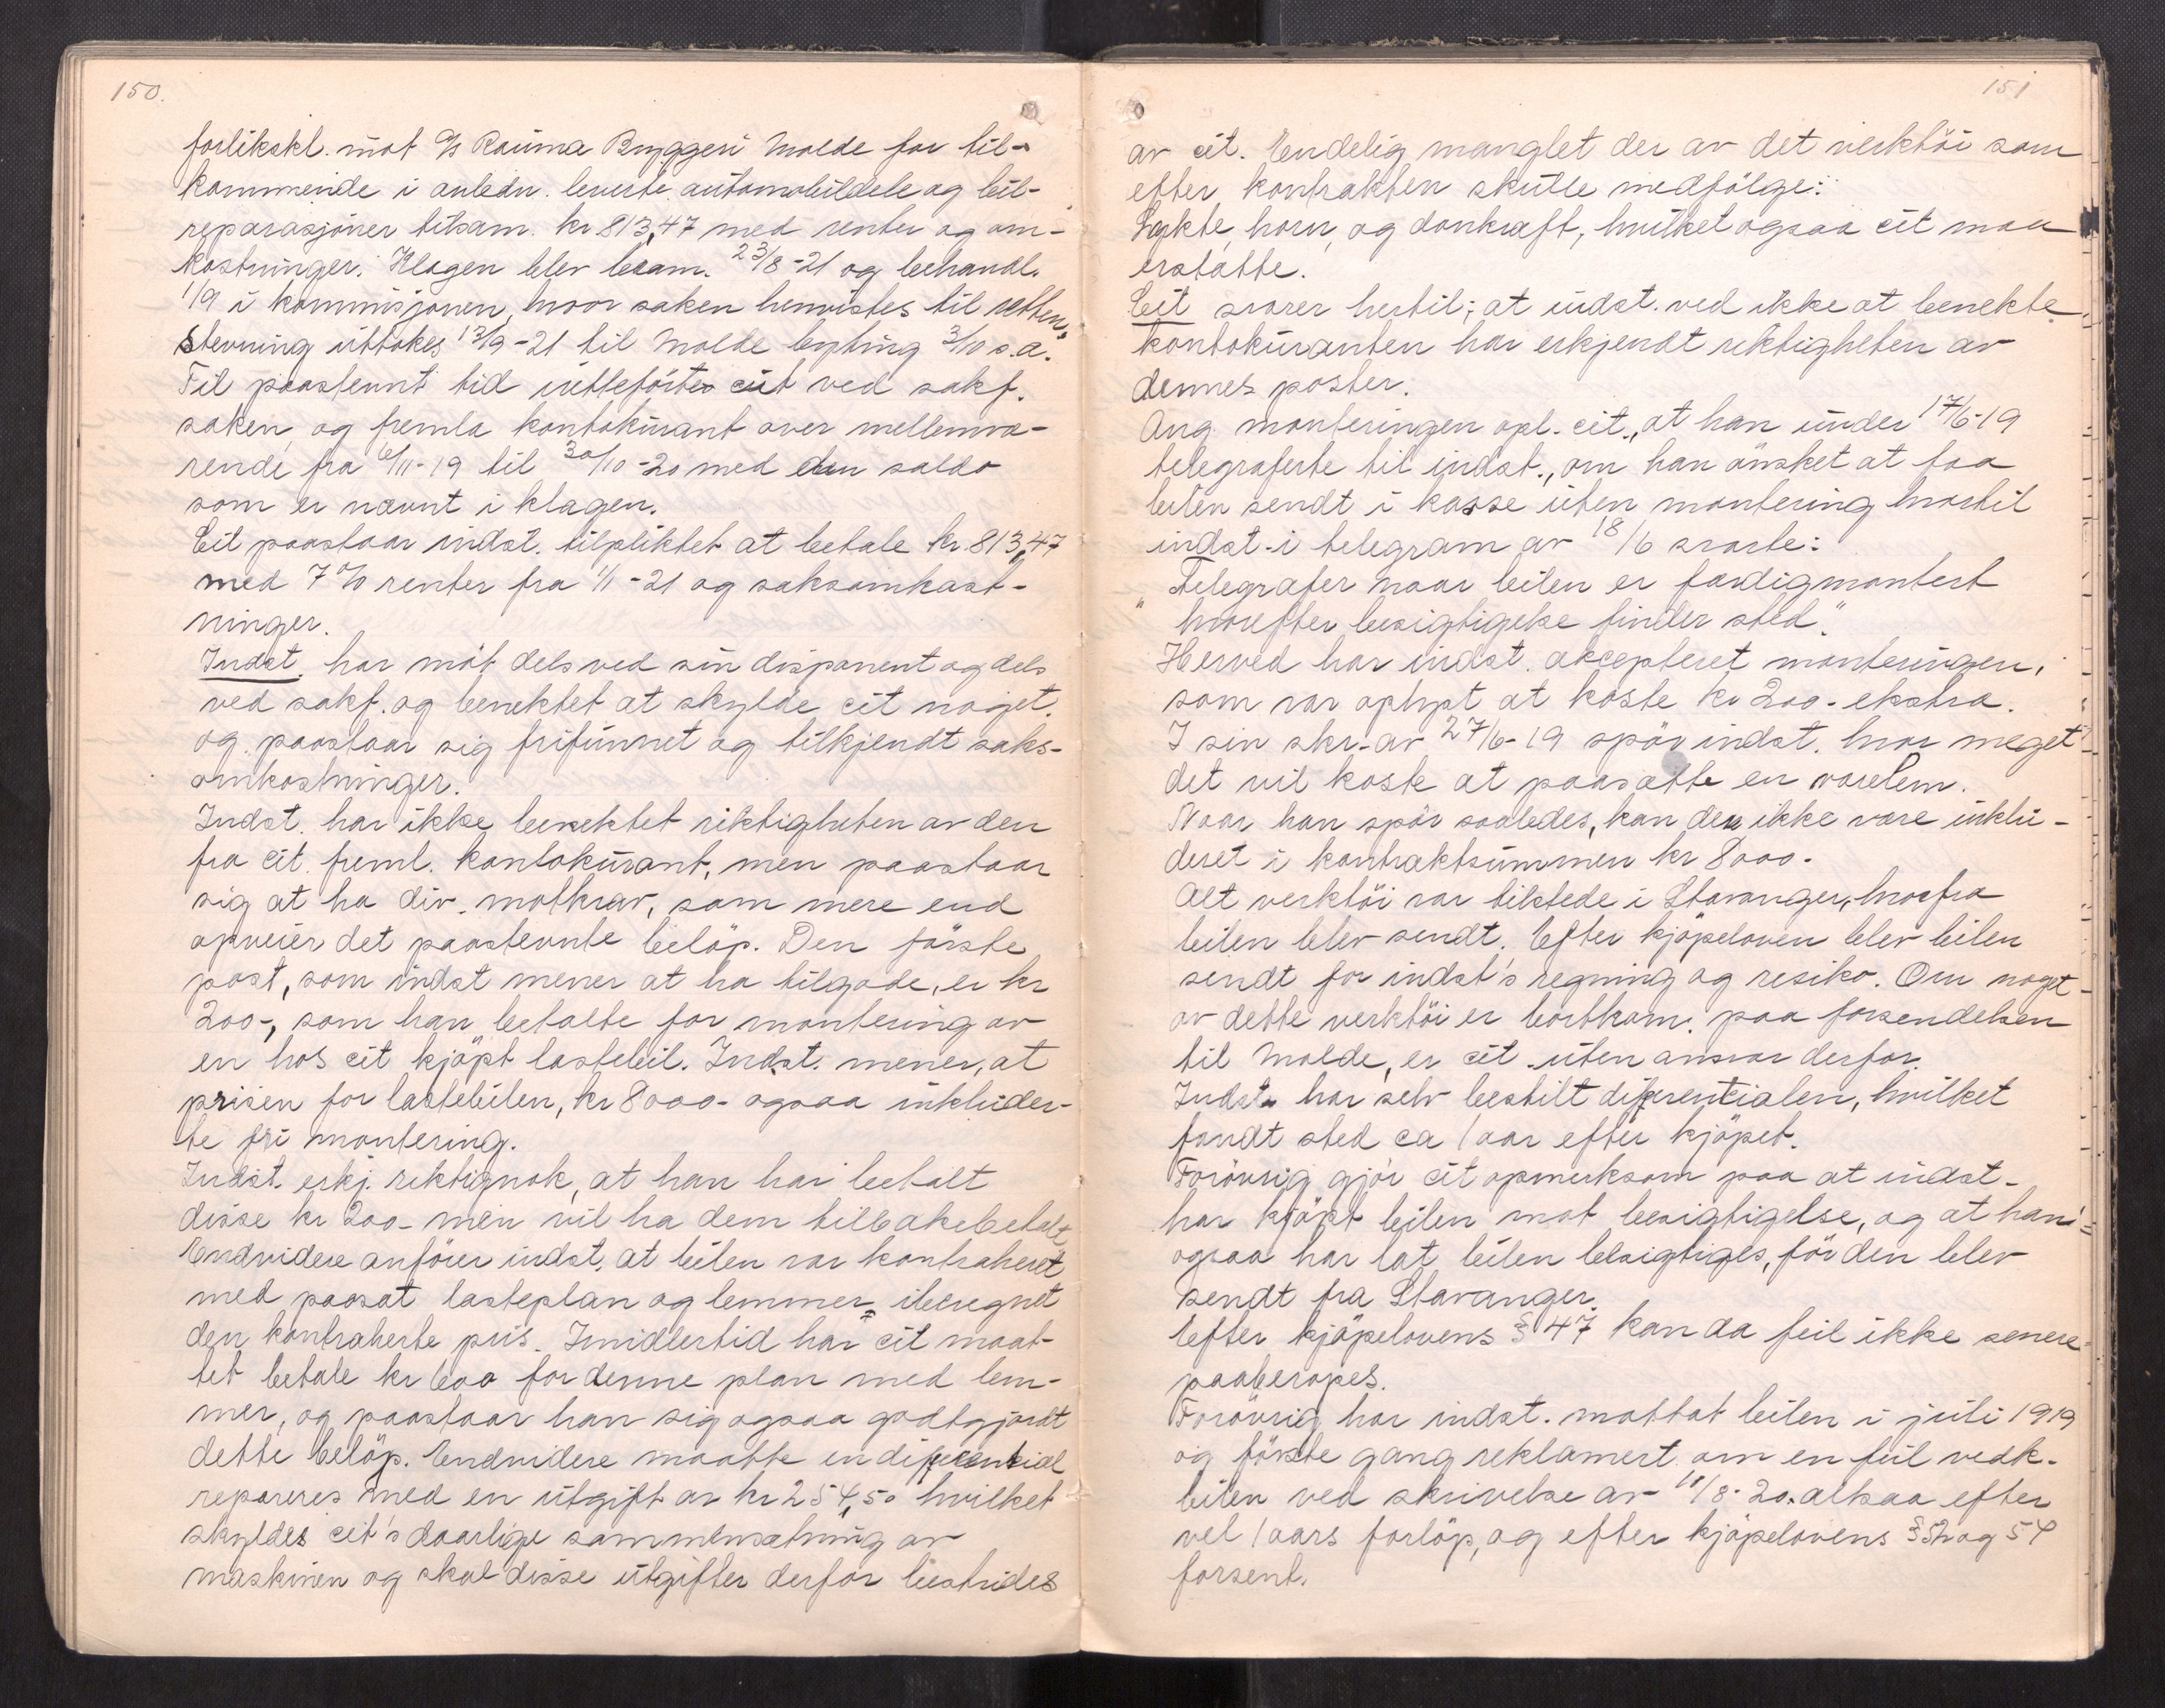 150.
forlikskl. mot A/S Rauma Bryggeri Molde for til-
kommende i anledn. leverte automobildele og bil-
reparasjoner tilsam. kr 813,47 med renter og om-
kostninger. Klagen blev beram. 23/8-21 og behandl.
1/9 i kommisjonen, hvor saken henvistes til retten.
Stevning uttokes 13/9-21 til Molde byting 3/10 s.a.
Til paastevnt tid indleförtes cit ved sakf.
saken og fremla kontokurant over mellemvæ-
rende fra 6/11-19 til 30/10-20 med den saldo
som er nævnt i klagen.
Cit paastaar indst. tilpliktet at betale kr. 813,47
med 7 % renter fra 1/1-21 og saksomkost-
ninger.
Indst. har möt dels ved sin disponent og dels
ved sakf. og benektet at skylde cit noget.
og paastaar sig frifunnet og tilkjendt saks-
omkostninger.
Indst. har ikke benektet riktigheten av den
fra cit. freml. kontokurant, men paastaar
sig at ha div. motkrav, som mere end
opveier det paastevnte belöp. Den förste
post, som indst mener at ha tilgode, er kr
200-, som han betalte for montering av
en hos cit kjöpt lastebil. Indst. mener, at
prisen for lastebilen, kr 8000- ogsaa inkluder-
te fri montering.
Indst. erkj. riktignok, at han har betalt
disse kr 200- men vil ha dem tilbakebetalt,
Endvidere anförer indst, at bilen var kontraheret
med paasat lasteplan og lemmer, iberegnet
den kontraherte pris. Imidlertid har cit maat-
tet betale kr 600 for denne plan med lem-
mer, og paastaar han sig ogsaa godtgjordt
dette belöp. Endvidere maatte en differential
repareres med en utgift av kr 254,50 hvilket
skyldes cit's daarlige sammensætning av
maskinen og skal disse utgifter derfor bestrides
151
av cit. Endelig manglet der av det verktöi som
efter kontrakten skulle medfölge:
Lykte, horn, og donkraft, hvilket ogsaa cit maa
erstatte.
Cit svarer hertil; at indst. ved ikke at benekte
kontokuranten har erkjendt riktigheten av
dennes poster.
Ang. monteringen opl. cit., at han under 17/6-19
telegraferte til indst., om han önsket at faa
bilen sendt i kasse uten montering hvortil
indst. i telegram av 18/6 svarte:
"Telegrafer naar bilen er færdigmontert
hvorefter besigtigelse finder sted."
Herved har indst. akcepteret monteringen,
som var oplyst at koste kr 200- ekstra.
I sin skr. av 27/6-19 spör indst. hvor meget
det vil koste at paasætte en varelem.
Naar han spör saaledes, kan den ikke være inklu-
deret i kontraktsummen kr 8000-
Alt verktöi var tilstede i Stavanger, hvorfra
bilen blev sendt. Efter kjöpeloven blev bilen
sendt for indst's regning og resiko. Om noget
av dette verktöi er bortkom. paa forsendelsen
til Molde, er cit uten ansvar derfor.
Indst. har selv bestilt diffrentialen, hvilket
fandt sted ca 1 aar efter kjöpet.
Forövrig gjör cit opmerksom paa at indst-
har kjöpt bilen mot besigtigelse, og at han
ogsaa har lat bilen besigtiges, för den blev
sendt fra Stavanger.
Efter kjöpelovens § 47 kan da feil ikke senere
paaberopes.
Forövrig har indst. mottat bilen i juli 1919
og förste gang reklamert om en feil vedk.
bilen ved skrivelse av 18/8-20. altsaa efter
vel 1 aars forlöp, og efter kjöpelovens § 52 og 54
forsent.